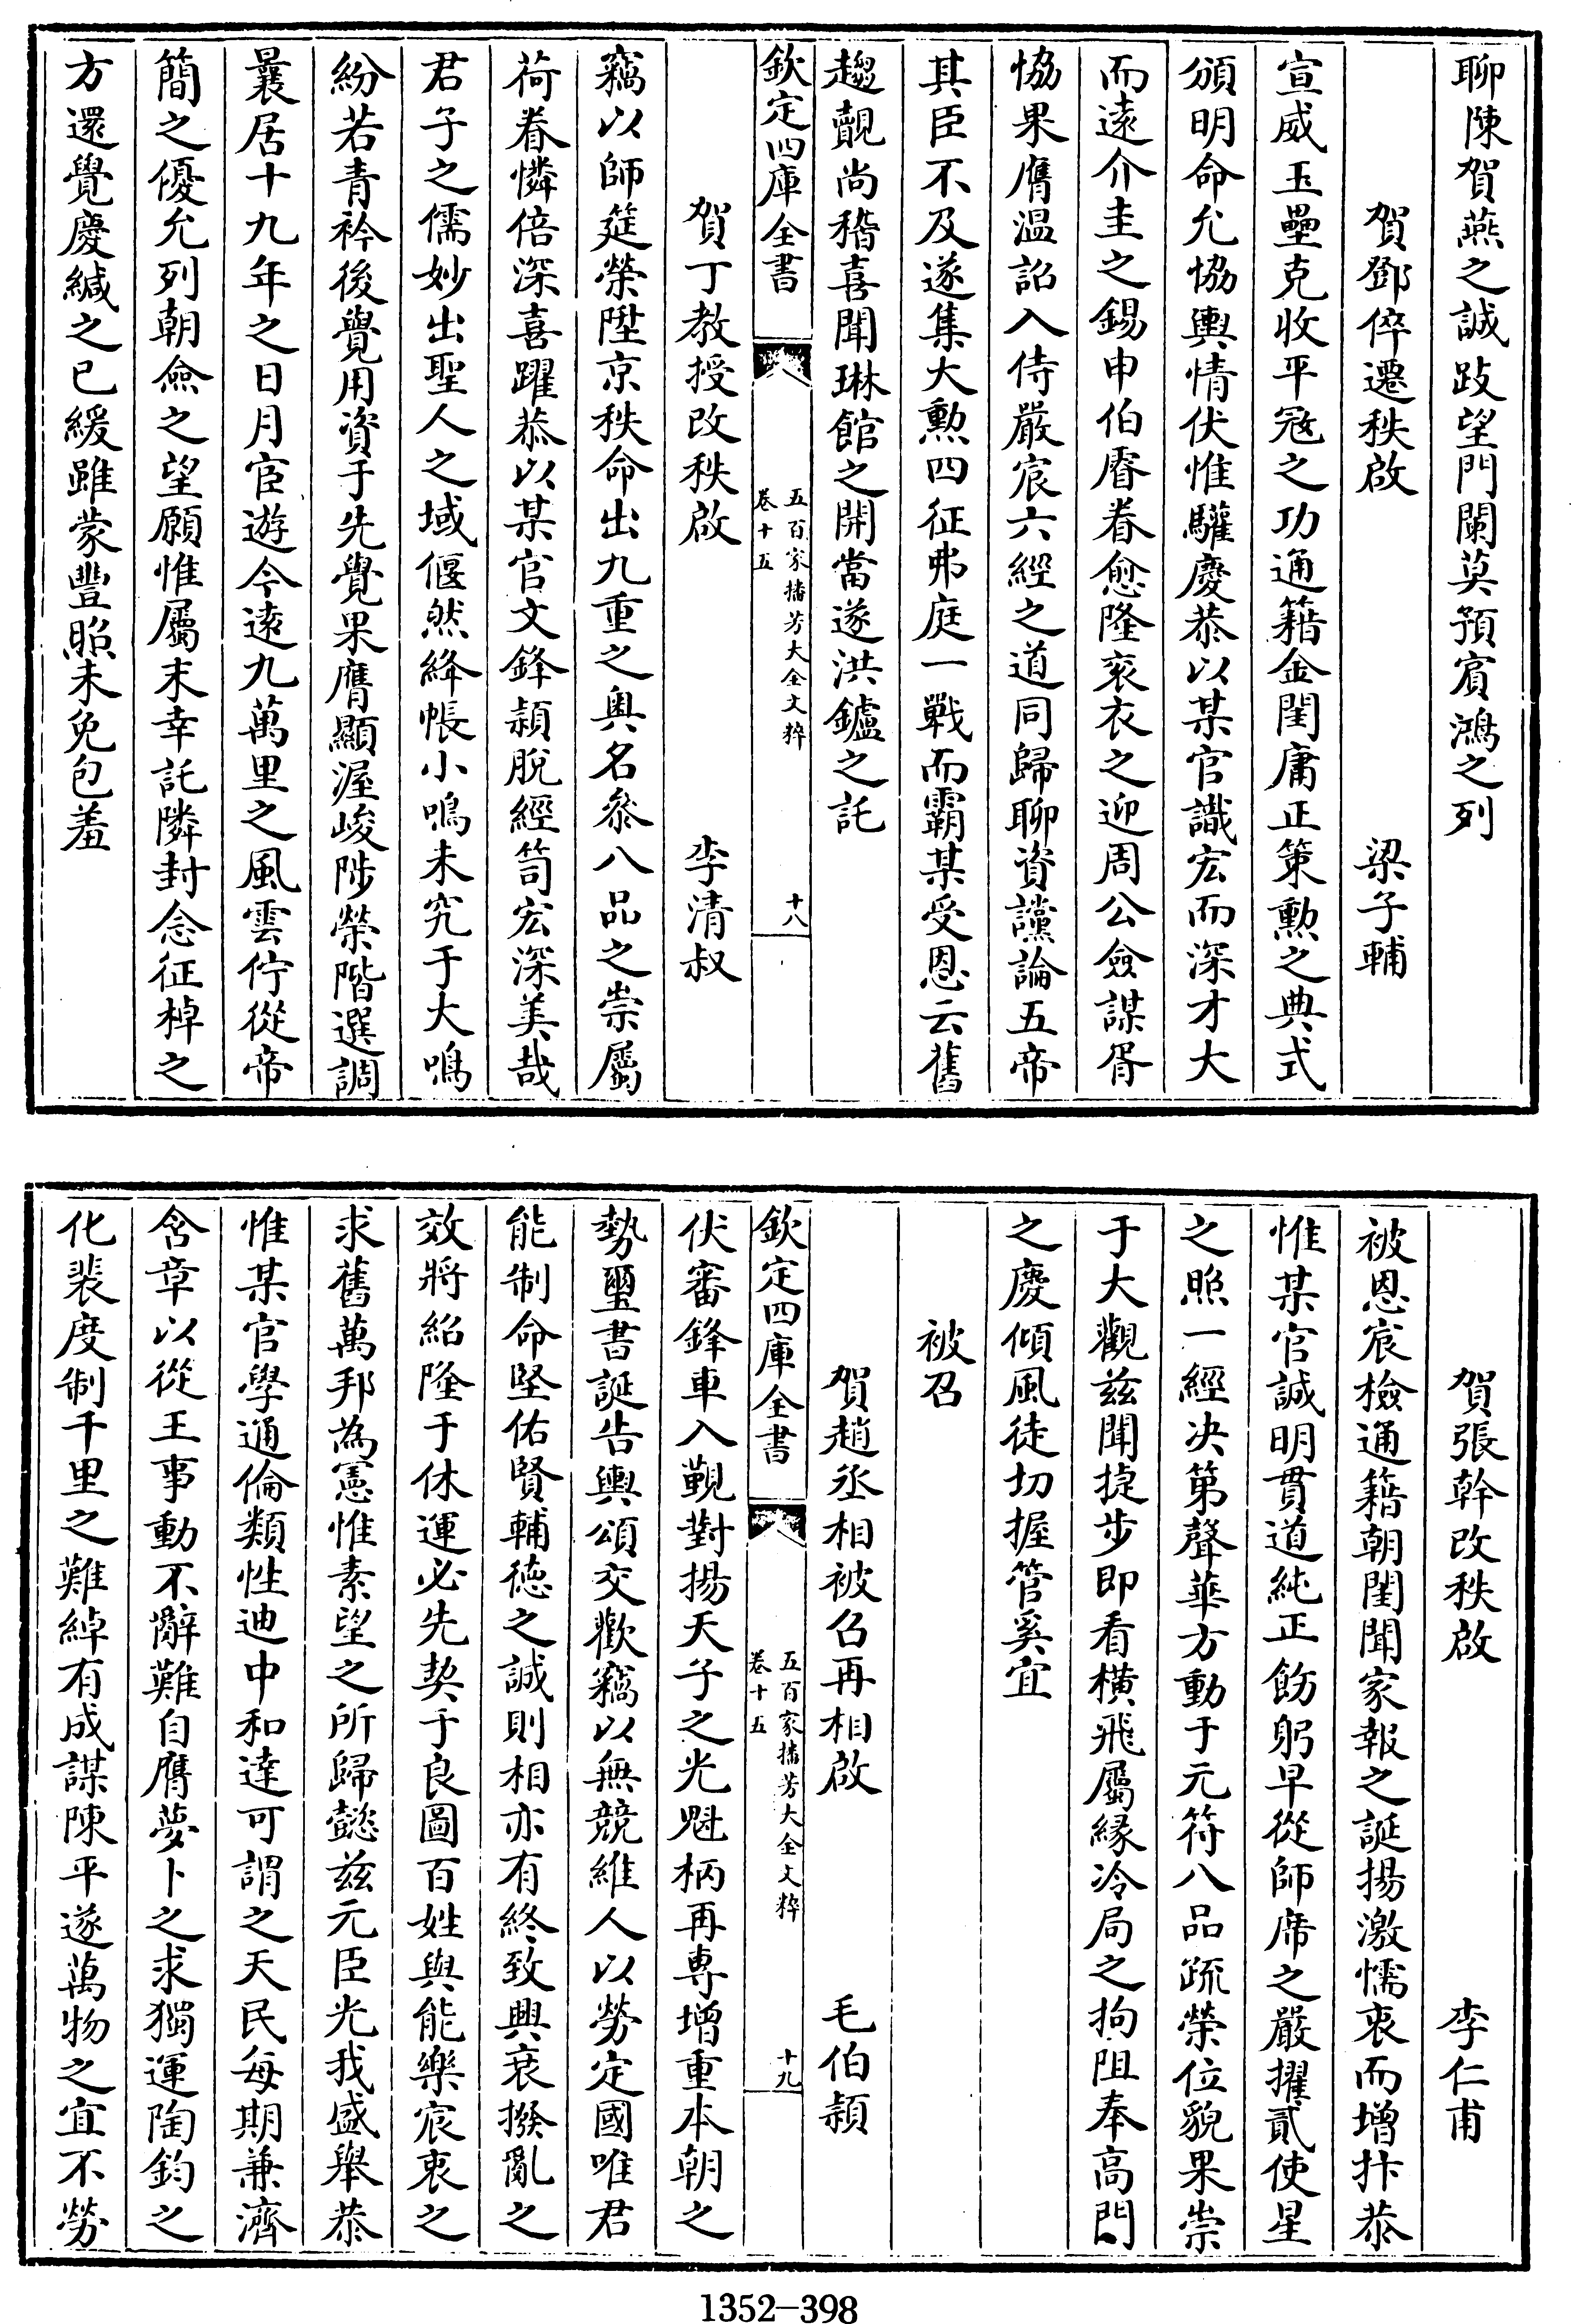 聊陳賀燕之誠跂望門闌莫預賓鴻之列
賀鄧倅遷秩啟　梁子輔
宣威玉壘克收平寇之功通籍金閨庸正策勲之典式
頒明命允協輿情伏惟驩慶恭以某官識宏而深才大
而遠介圭之錫申伯睿眷愈隆衮衣之迎周公僉謀胥
恊果膺溫詔入侍嚴宸六經之道同歸聊資讜論五帝
其臣不及遂集大勲四征弗庭一戰而霸某受恩云舊
趨覿尚稽喜聞琳館之開當遂洪鑪之託
欽定四庫全書
五百家播芳大全文粹
卷十五
十八
賀丁教授改秩啟　李清叔
竊以師筵榮陞京秩命出九重之奥名叅八品之崇屬
荷眷憐倍深喜躍恭以某官文鋒頴脫經笥宏深美哉
君子之儒妙出聖人之域偃然絳帳小鳴未究于大鳴
紛若青衿後覺用資于先覺果膺顯渥峻陟榮階選調
曩居十九年之日月宦遊今遠九萬里之風雲佇從帝
簡之優允列朝僉之望願惟屬末幸託隣封念征棹之
方還覺慶緘之已緩雖蒙豐照未免包羞
賀張幹改秩啟　李仁甫
被恩宸檢通籍朝閨聞家報之誕揚激懦衷而增抃恭
惟某官誠明貫道純正飭躬早從師席之嚴擢貳使星
之照一經决第聲華方動于元符八品疏榮位貌果崇
于大觀兹聞捷步即看橫飛屬緣冷局之拘阻奉高門
之慶傾風徒切握管奚宜
被召
賀趙丞相被召再相啟　毛伯頴
欽定四庫全書
五百家播芳大全文粹
卷十五
十九
伏審鋒車入覲對揚天子之光魁柄再專增重本朝之
勢璽書誕告輿頌交歡竊以無競維人以勞定國唯君
能制命堅佑賢輔徳之誠則相亦有終致興衰撥亂之
效將紹隆于休運必先契于良圖百姓與能樂宸衷之
求舊萬邦為憲惟素望之所歸懿兹元臣光我盛舉恭
惟某官學通倫類性迪中和達可謂之天民每期兼濟
含章以從王事動不辭難自膺夢卜之求獨運陶鈞之
化裴度制千里之難綽有成謀陳平遂萬物之宜不勞
1352-398